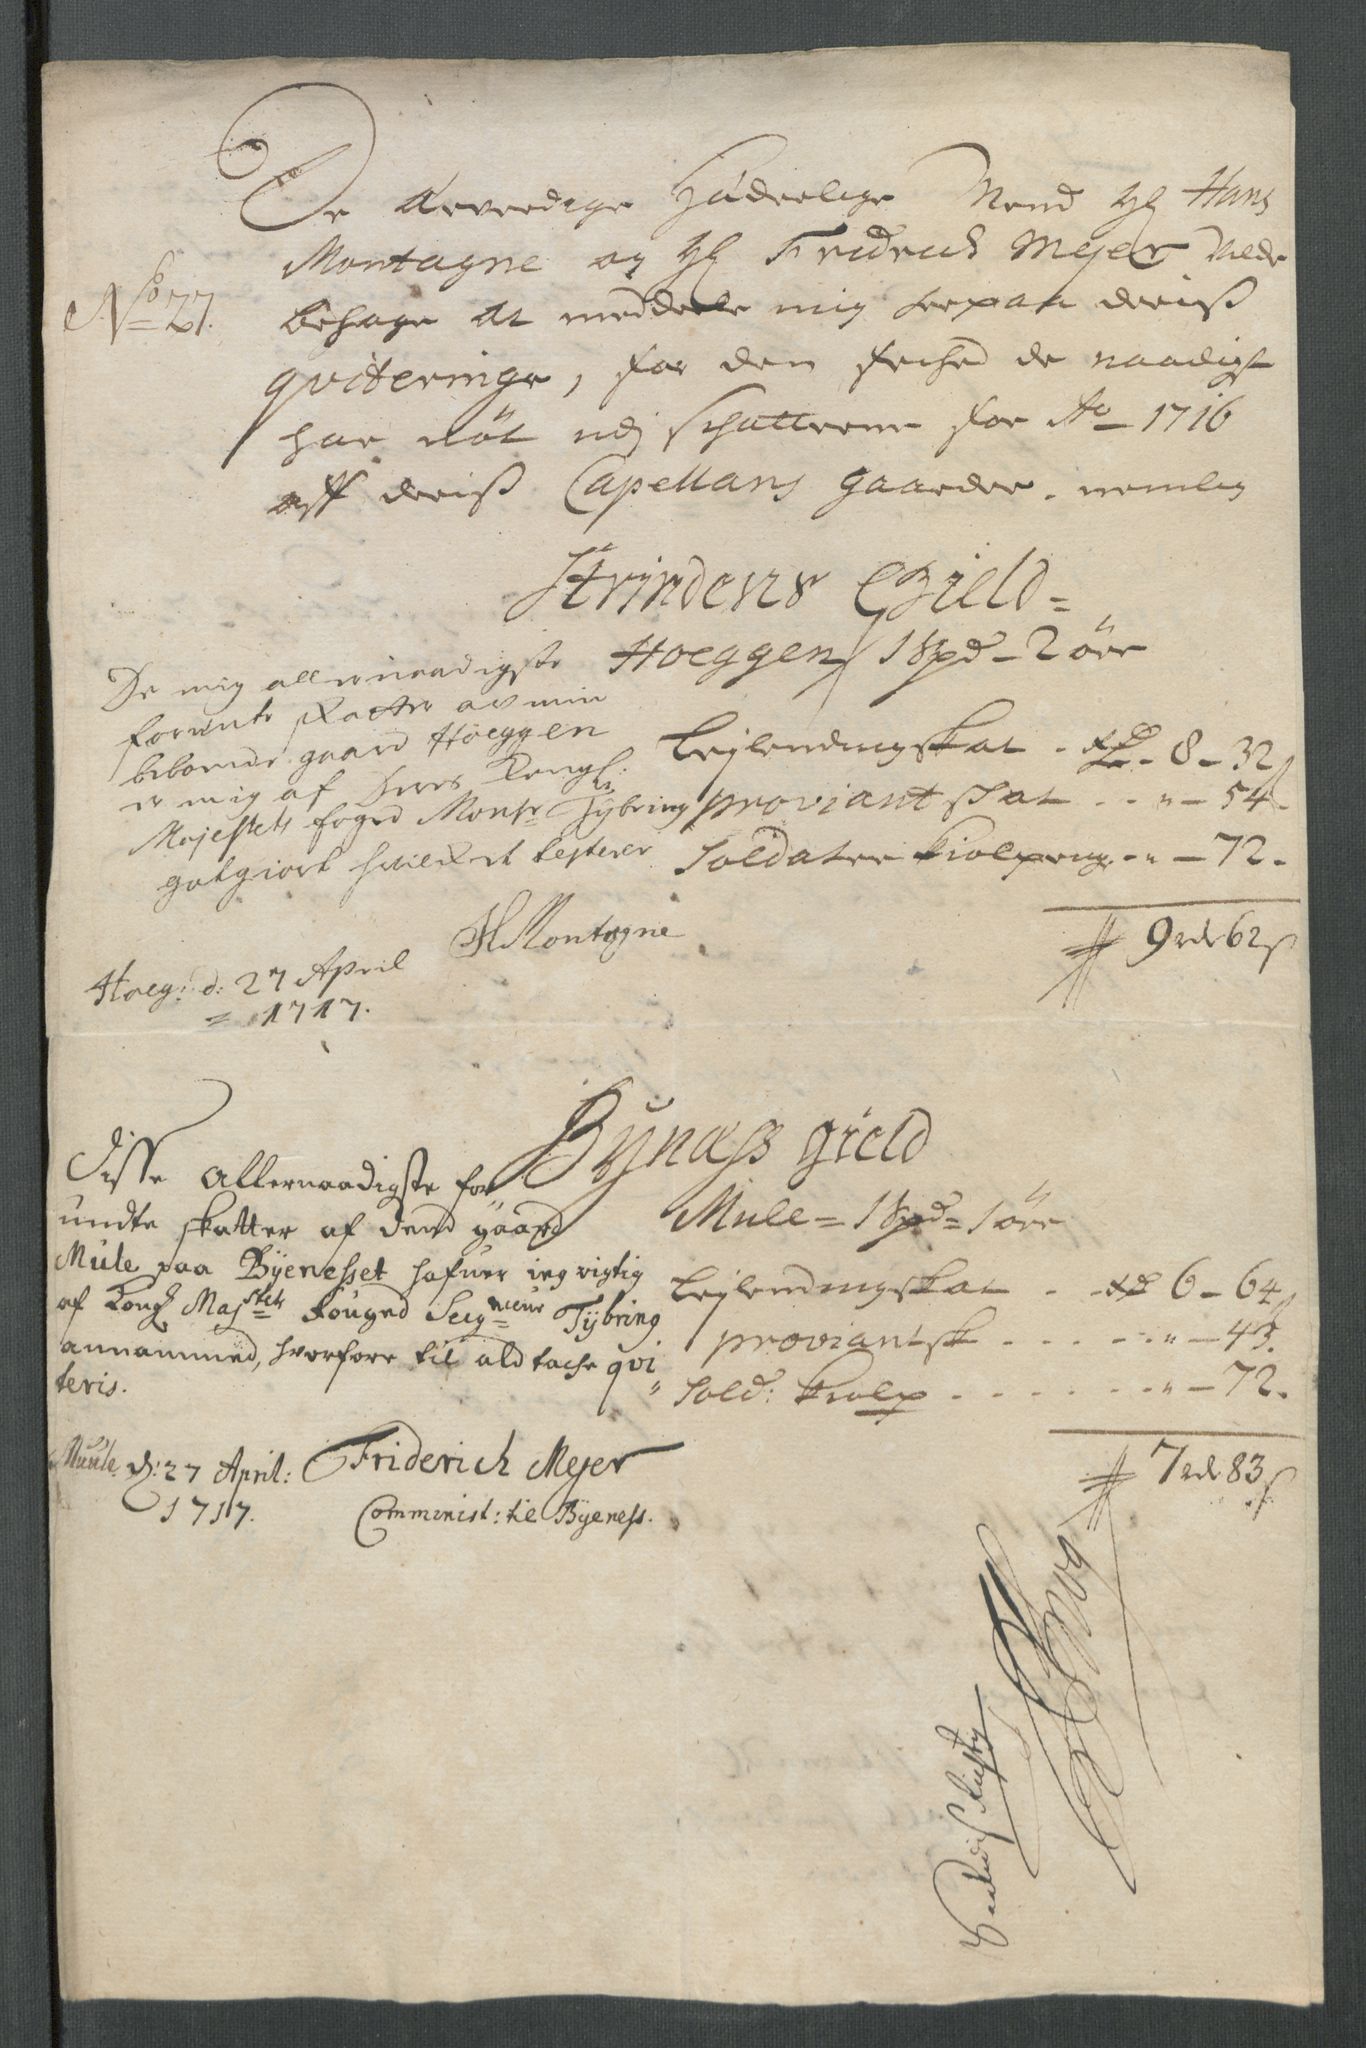 De Ærverdige Hæderlige Mend Hr Hans
No 27.
Montagne og Hr Fredrich Mejer vilde
behage at meddeele mig herpaa deriß
qviteringe, for den frihed de naadigst
har nöt udj Schatterne for Ao 1716
aff deriß Capellans gaarder. nemlig
Strindens Gield
Hoeggen 1 Spd - 2 öre
Lejlendingskat - rdr 8 - 32
proviant skat - - " - 54
Soldater Kiolpeng - " - 72.
9 rdr 62 s
De mig allernaadigste
forundte skatter av min
beboende gaard Höeggen
er mig af Deres Kongl:
Majestets foged Monsr Tÿbring
gotgiort hvilket testerer
HMontagne
Hoeg: d: 27 April
1717.
Bynæß gield
Mule = 1 Spd = 1 öre
Lejlendingskat - rdr 6 - 64
proviantsk - - - " - 43.
Sold: Kiolp - - - " - 72.
7 rdr 83 s
Disse Allernaadigste for
undte skatter af dend gaard
Mule paa Bÿenesset hafuer ieg rigtig
af Kongl Majstets Fouged Seigneur Tÿbring
annammed, hvorfore til ald tache qvi
teris.
Muule d: 27 April: Friderich Mejer
1717. Comminist: til Bÿeness.